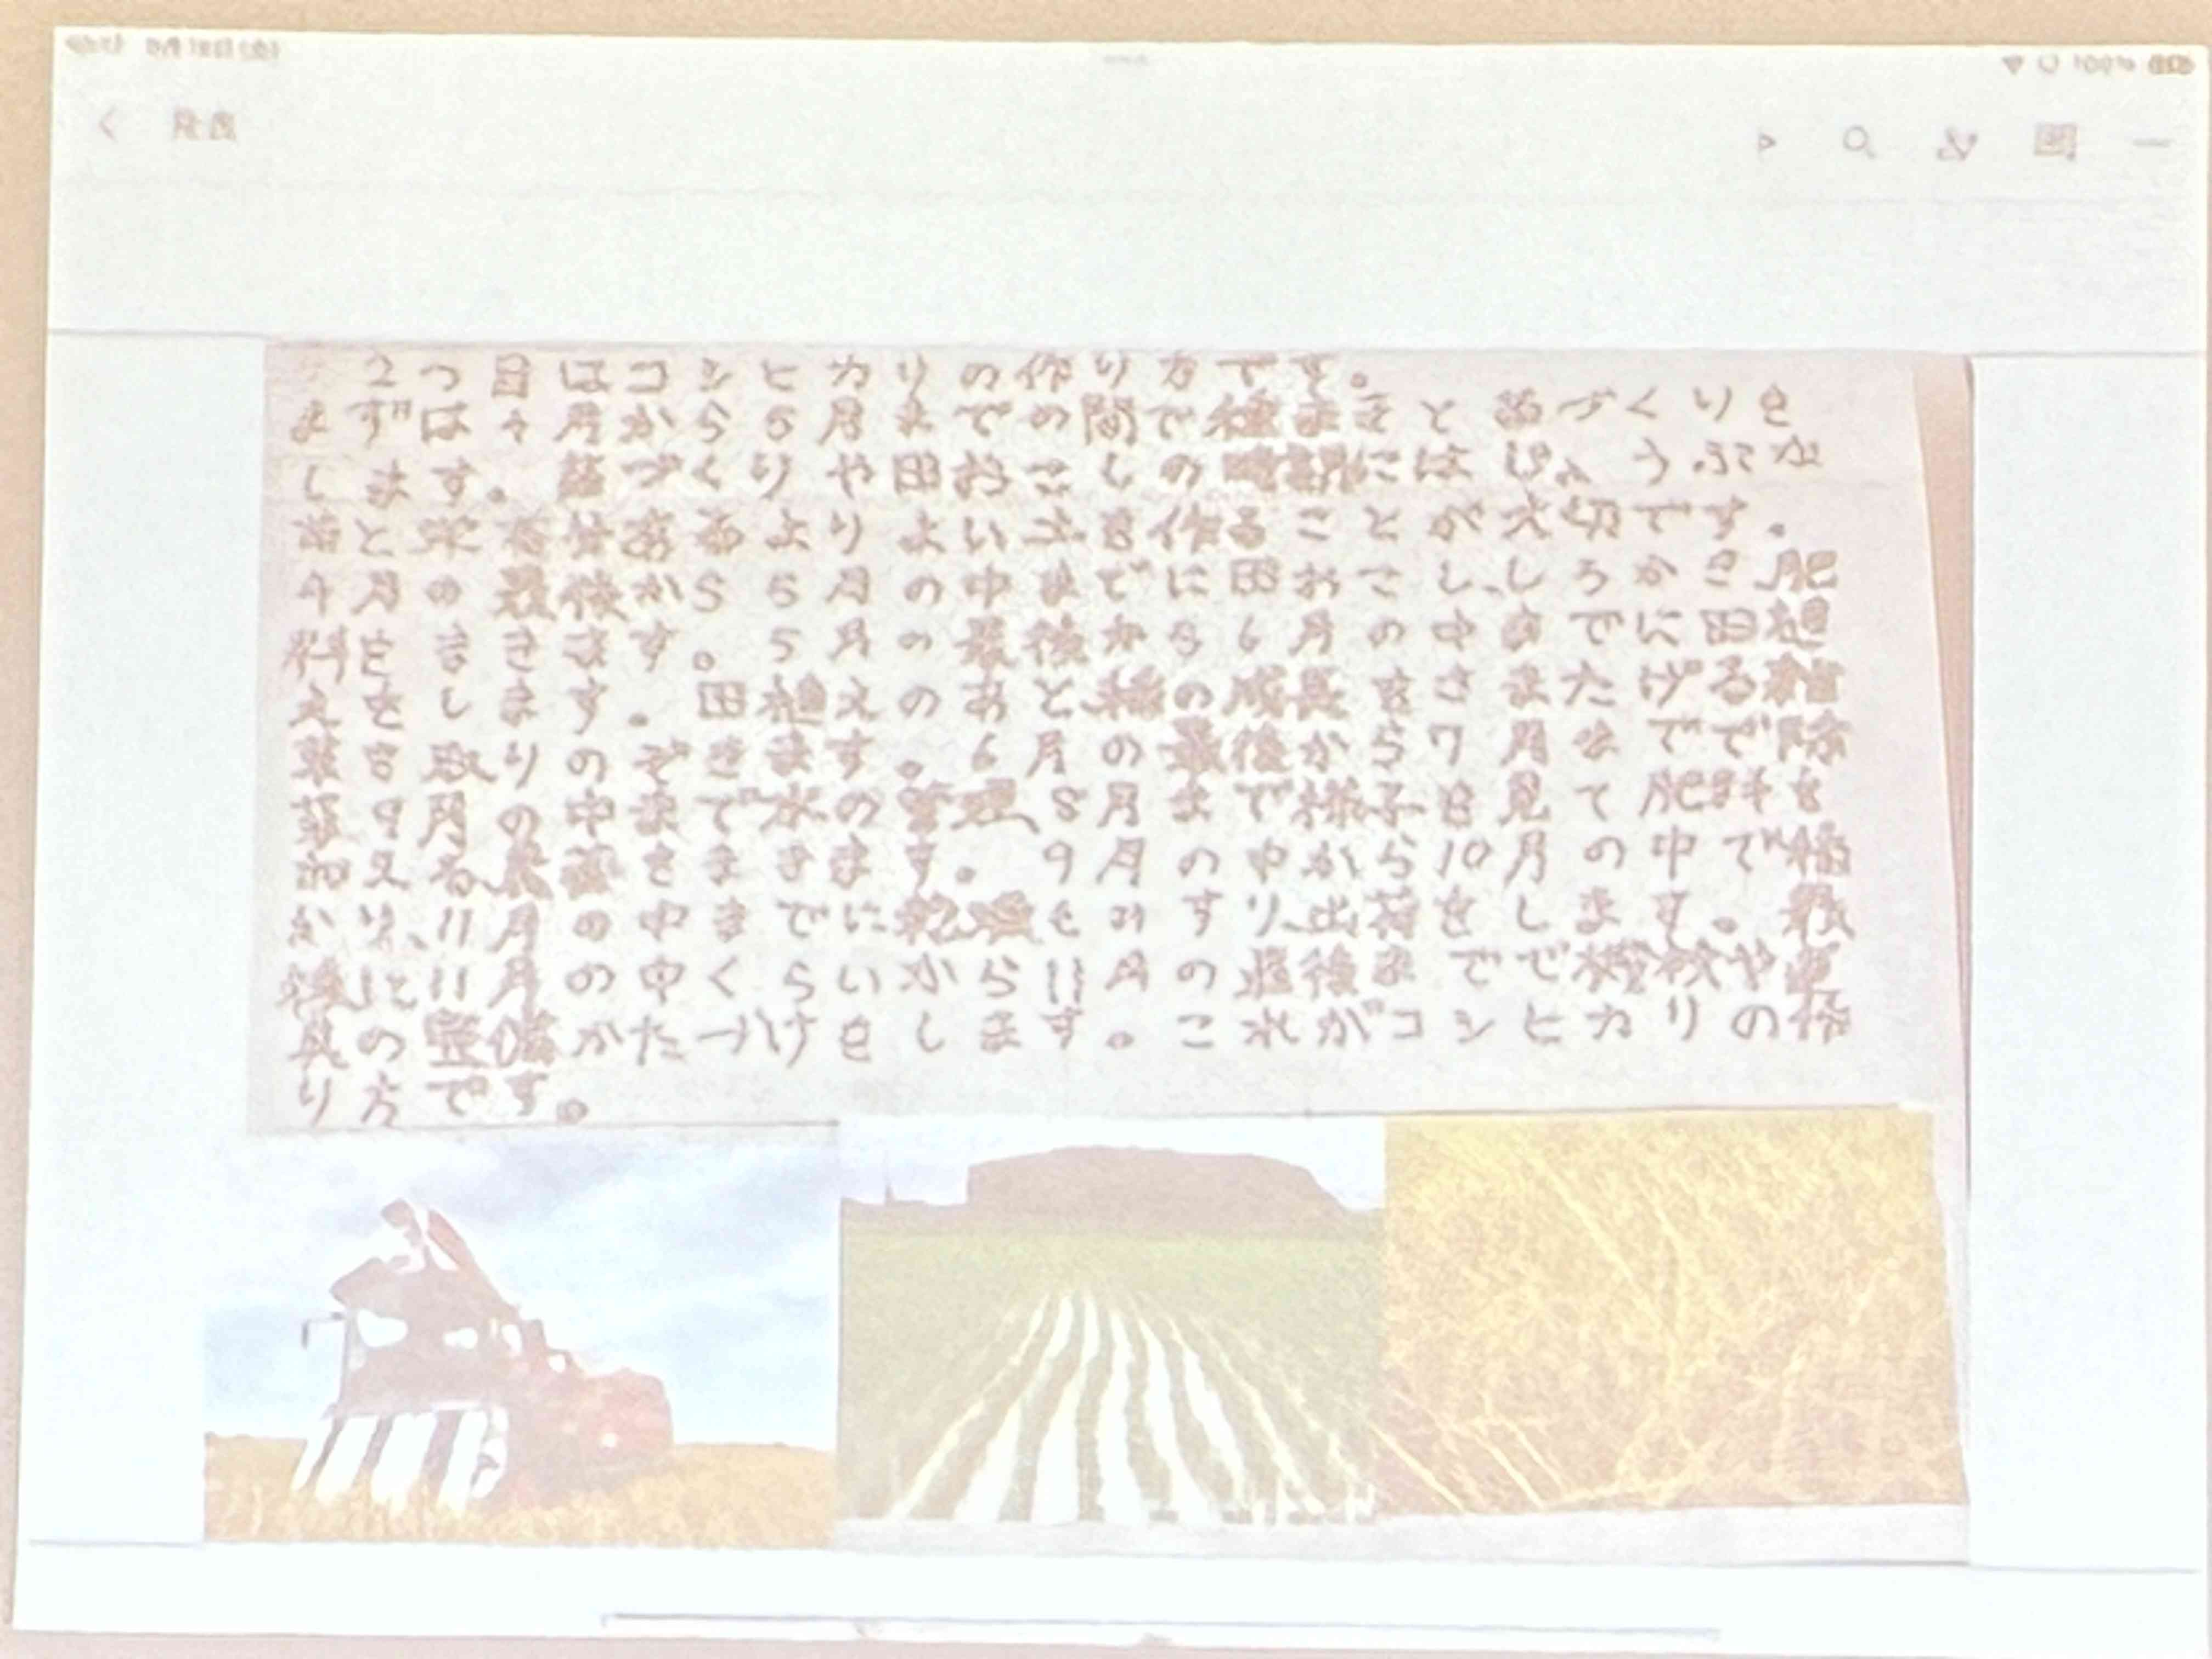 発表
2つ目はコシヒカリの作り方です。
まずは4月から5月までの間で種まきと苗づくりを
します。苗づくりや田おこしの時期にはじょうぶな
苗と栄養があるよりよい土を作ることが大切です。
4月の最後から5月の中までに田おこし、しろかき、肥
料をまきます。5月の最後から6月の中までに田植
えをします。田植えのあと、稲の成長をさまたげる雑
草を取りのぞきます。6月の最後から7月までで除
草、9月の中まで水の管理、8月まで様子を見て肥料を
加える、農薬をまきます。9月の中から10月の中で稲
かり、11月の中までに乾燥もみすり、出荷をします。最
後に11月の中くらいから11月の最後までで機械や道
具の整備かたづけをします。これがコシヒカリの作
り方です。